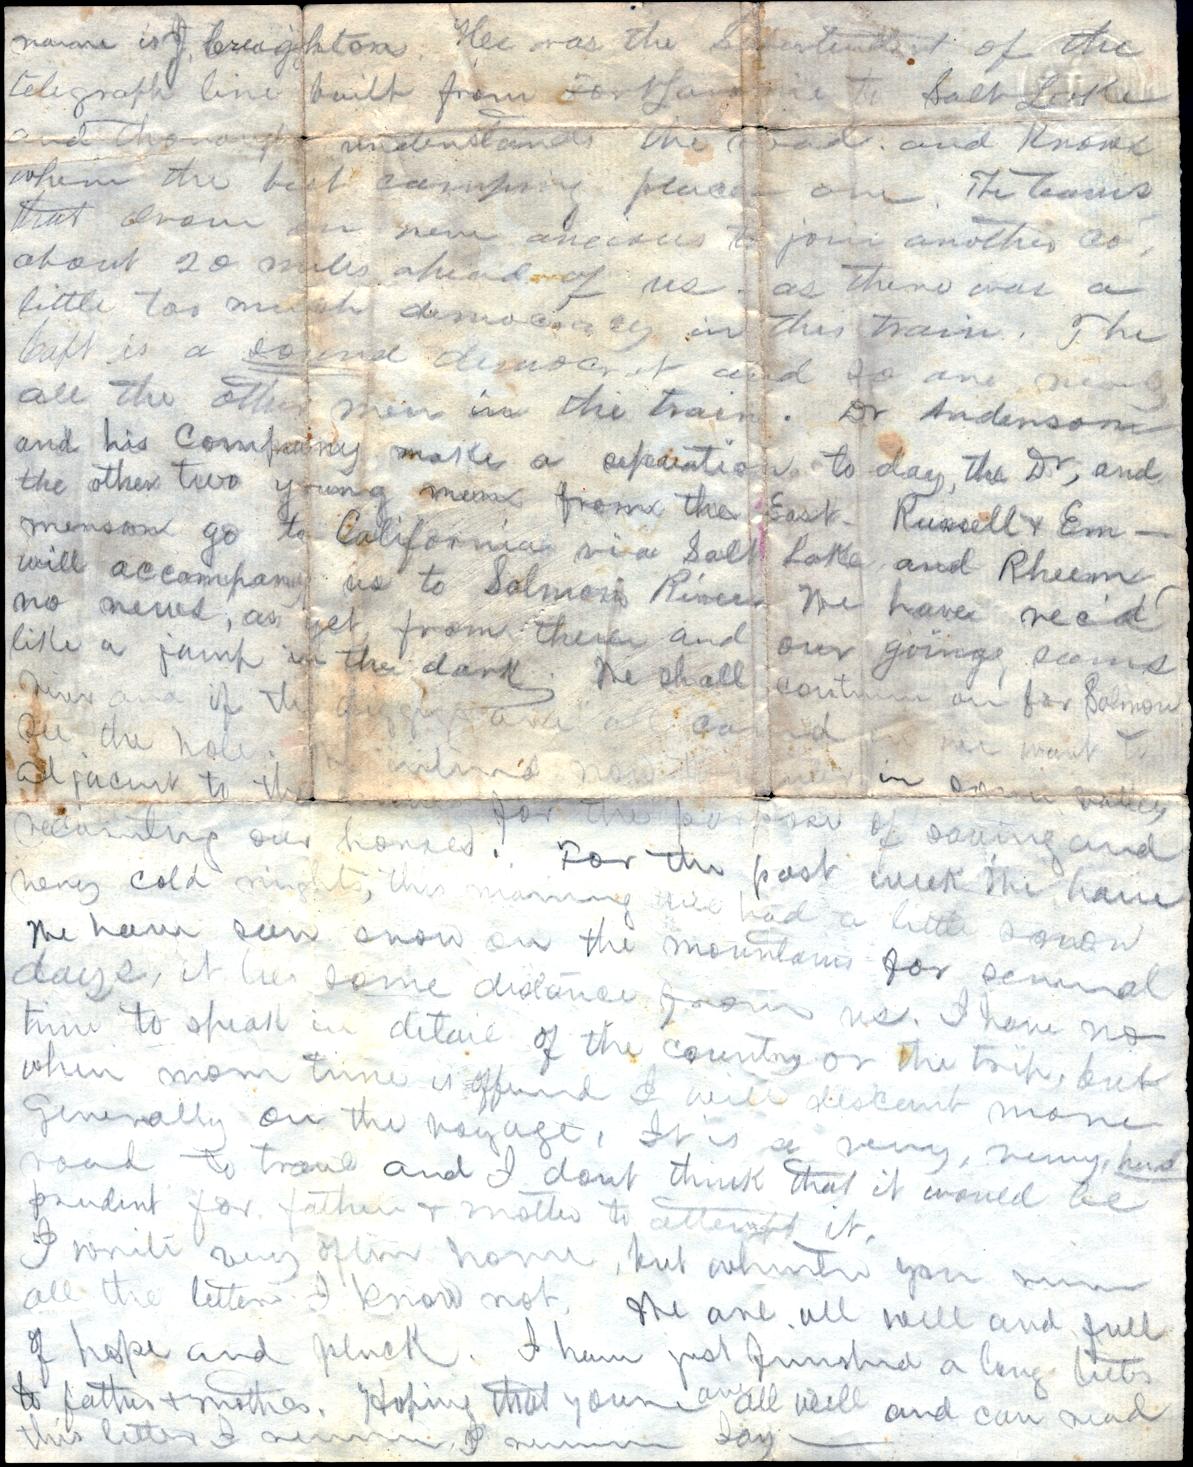 name is J. Creighton. Hee was the Superintendent of the
telegraph line built from Fort Laramie to Salt Lake
and thoroughly understands the road. and Knows
where the best camping places are. The teams
that drove on were anxious to join another Co,
about 20 miles ahead of us - as there was a
little too much democracy in this train. The
Capt is a sound democrat and so are nearly
all the other men in the train. Dr Anderson
and his Company make a separation to day, the Dr, and
the other two young men from the East. Russell & Em-
menson go to California via Salt Lake and Rheem
will accompany us to Salmon River We have rec'd
no news, as yet from there and our going seems
like a jump in the dark. We shall continue on for Salmon
River and if the diggings are all we want to
see the hole. We intend now to in some valley
adjacent to the for the purpose of saving and
recruiting our horses. For the past week We have
very cold nights, this morning we had a little snow
We have seen snow on the mountains for several
days, it lies some distance from us. I have no
time to speak in detail of the country or the trip, but
when more time is offered I will descant more
Generally on the voyage. It is a very, very, hard
road to travel and I dont think that it would be
prudent for father & mother to attempt it.
I write very often home, but whether you
all the letters I know not. We are all well and full
of hope and pluck. I have just finished a long letter
to father & mother. Hoping that you are all well and can read
this letter I remain, I remain